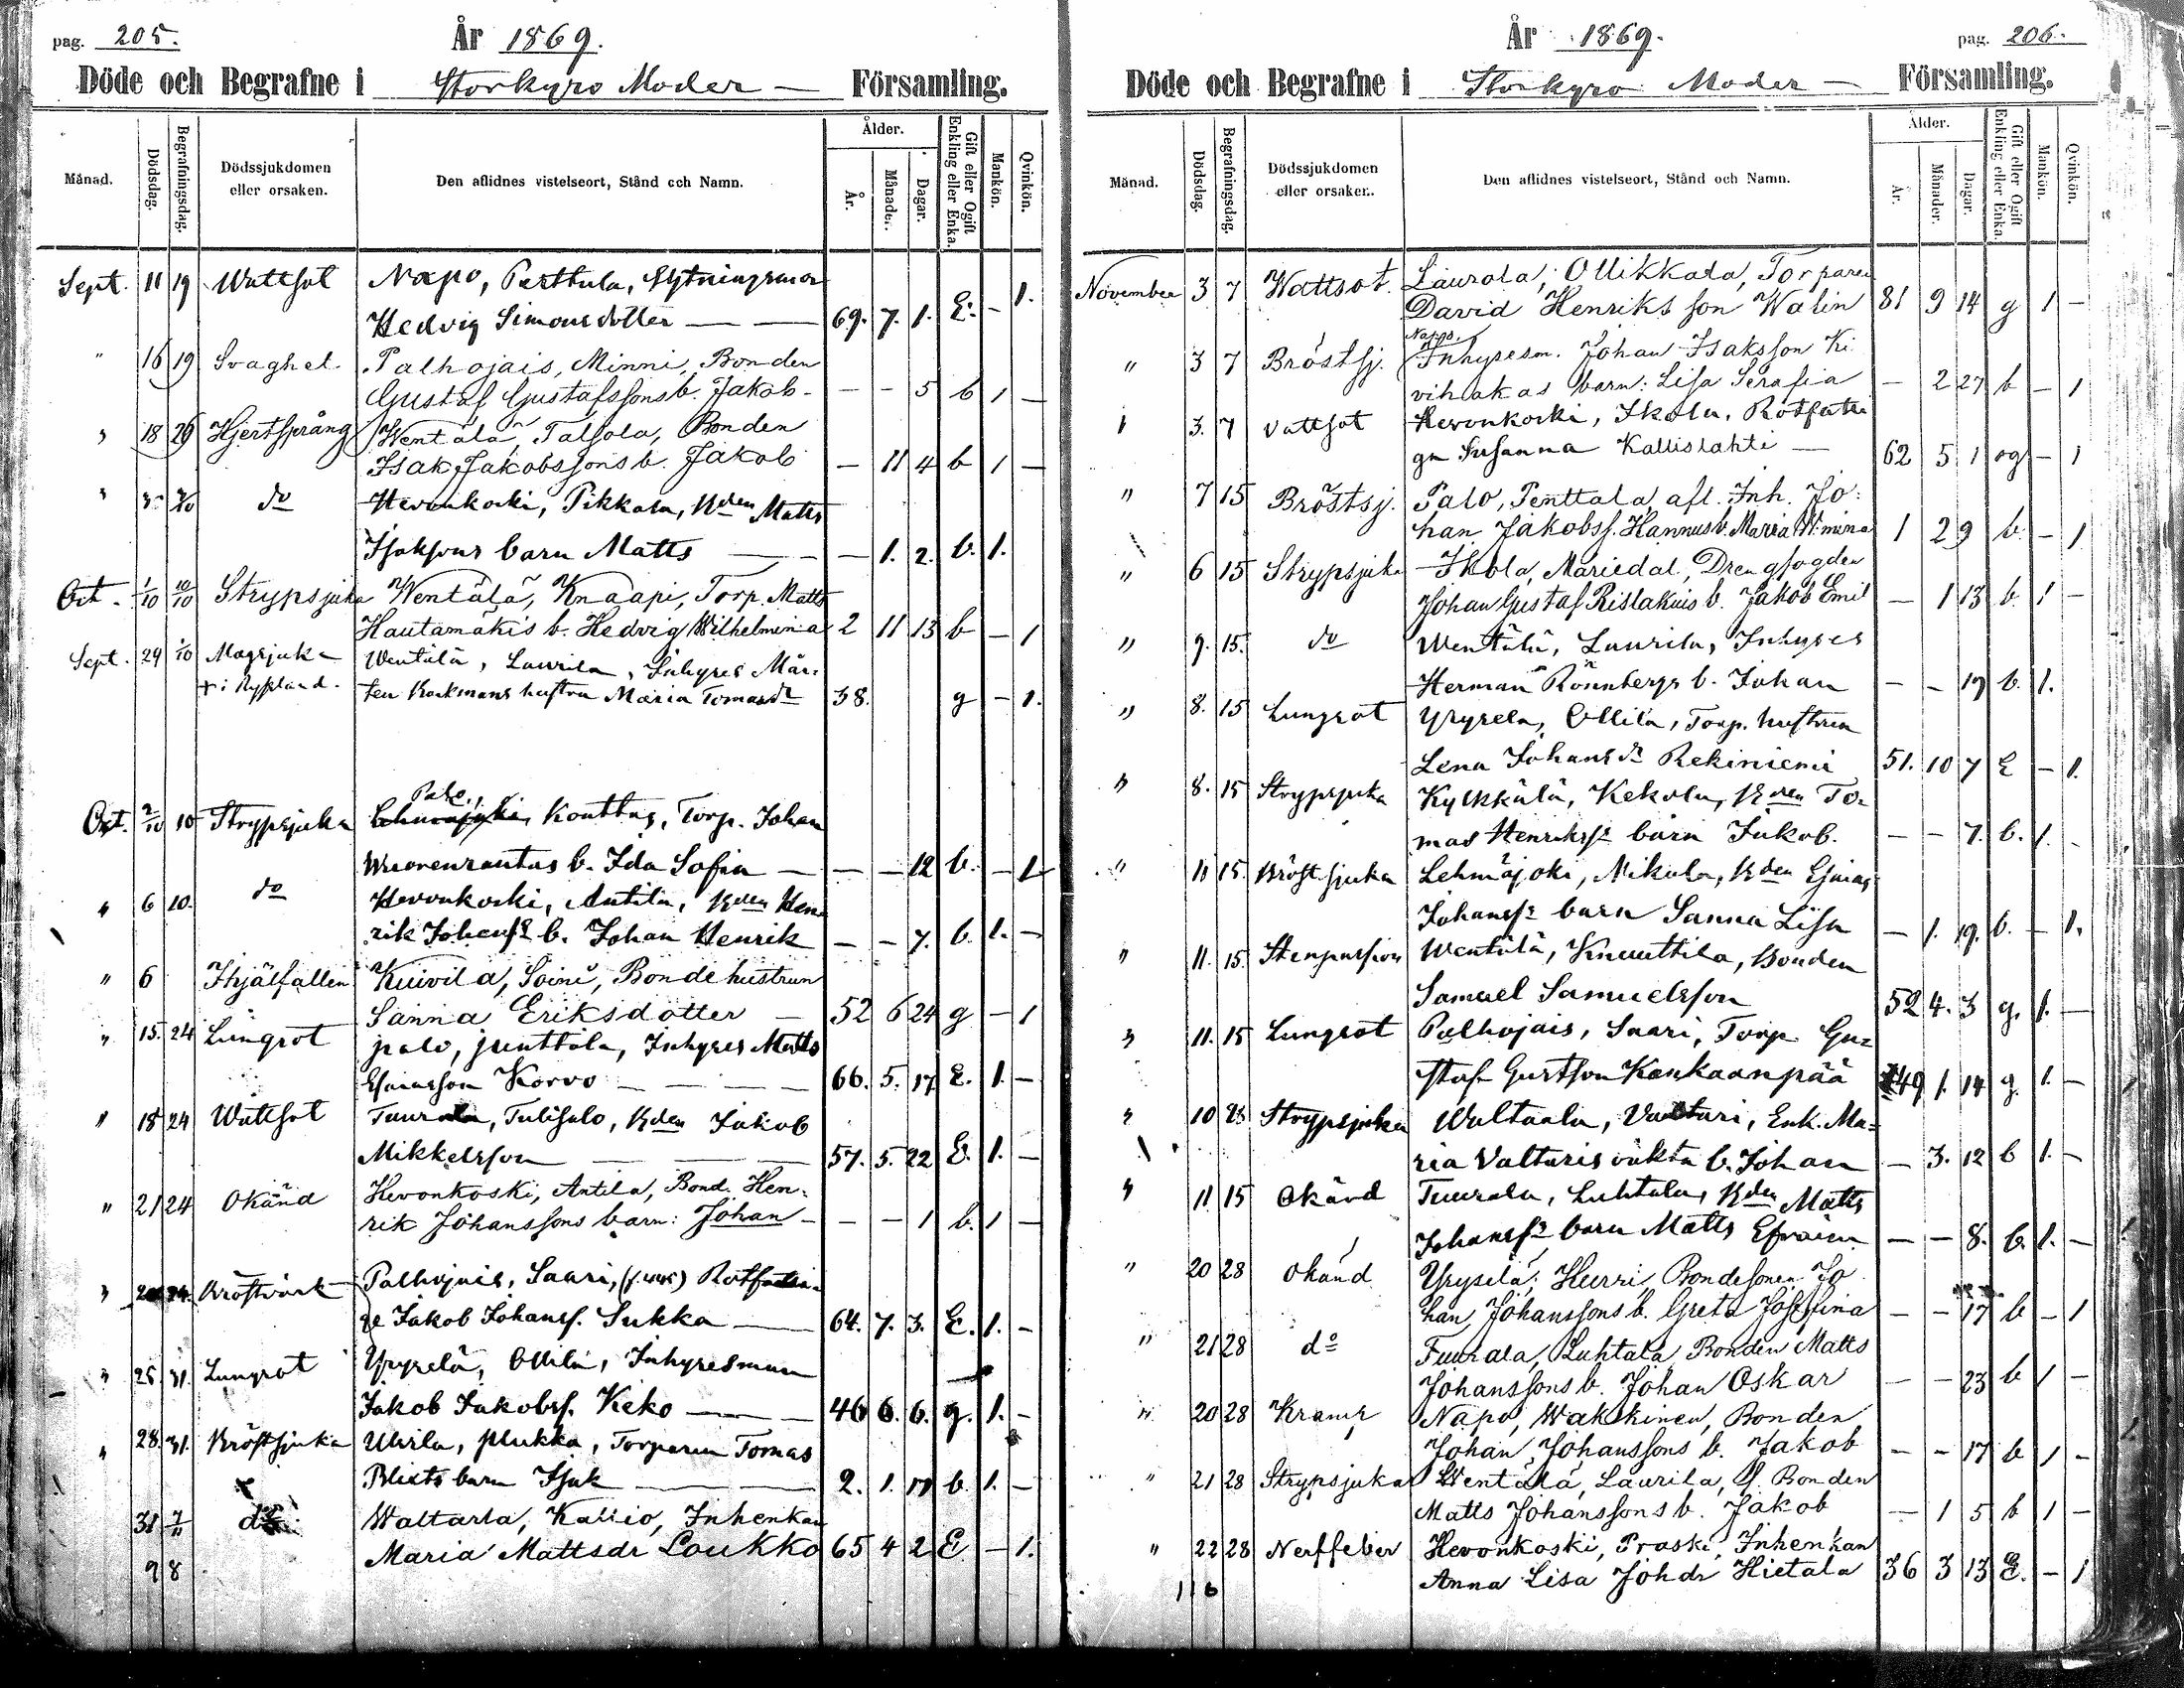 pag. 205.
År 1869.
Döde och Begrafne i Storkyro Moder — Församling.
Månad. Dödsdag. Begrafningsdag. Dödssjukdomen eller orsaken. Den aflidnes vistelseort, Stånd och Namn. Ålder. År. Månader. Dagar. Gift eller Ogift Enkling eller Enka. Mankön. Qvinkön.
Sept. 11 19 Wattsot Napo, Perttula, Sytningsmor
Hedvig Simonsdotter — — 69. 7. 1. E. — 1.
" 16 19 Svaghet. Palhojais, Minni, Bonden
Gustaf Gustafssons b. Jakob - — — 5 b 1 —
" 18 26 Hjertsprång Wentälä, Talsola, Bonden
Isak Jakobssons b. Jakob — 11 4 b 1 —
" do Hevonkoski, Pikkala, Bden Matts
Isakssons barn Matts — — — 1. 2. b. 1.
Oct. 1/10 10/10 Strypsjuka Wentälä, Knaapi, Torp. Matts
Hautamäkis b. Hedvig Wilhelmina 2 11 13 b — 1
Sept. 29 Magsjuka Wentälä, Laurila, Inhyses Mår-
+ i Ryssland. ten Krokmans hustru Maria Tomasdr 38. g — 1.
Palo,
Oct. 2/10 10 Strypsjuka Lehmäjoki, Kouttus, Torp. Johan
Wuorenrantas b. Ida Sofia — — — 12 b. — 1
" 6 10. do Hevonkoski, Antila, Bden Hen-
rik Johanss. b. Johan Henrik — — 7. b. 1. —
" 6 Ihjälfallen Kuivila, Soini, Bondehustrun
Sanna Eriksdotter — 52 6 24 g — 1
" 15. 24 Lungsot palo, penttala, Inhyses Matts
Esaiasson Korvo — — — 66. 5. 17 E. 1. —
" 18 24 Wattsot Tuurala, Tulisalo, Bden Jakob
Mikkelsson — — — 57. 5. 22 E. 1. —
" 21 24 Okänd Hevonkoski, Antila, Bond. Hen-
rik Johanssons barn: Johan — — — 1 b. 1 —
" 24. Bröstvärk Palhojais, Saari, Rotfatti-
ge Jakob Johanss. Sukka — 64. 7. 3. E. 1. —
" 25 31. Lungsot Yryselä, Ollila, Inhysesman
Jakob Jakobss. Keko — — 46 6. 6. g. 1. —
" 28. 31. Bröstsjuka Ulvila, plukka, Torparen Tomas
Blixts barn Isak — — 2. 1. 17 b. 1. —
31 7/11 do Waltarla, Kallio, Inhenkan
Maria Mattsdr Loukko 65 4 2 E — 1.
9 8
År 1869.
pag. 206.
Döde och Begrafne i Storkyro Moder — Församling.
Månad. Dödsdag. Begrafningsdag. Dödssjukdomen eller orsaken. Den aflidnes vistelseort, Stånd och Namn. Ålder. År. Månader. Dagar. Gift eller Ogift Enkling eller Enka. Mankön. Qvinkön.
November 3 7 Wattsot. Laurola, Ollikkala, Torparen
David Henriksson Walin 81 9 14 g 1 —
Napo.
" 3 7 Bröstsj. Inhysesm. Johan Isaksson Ki-
vihakas barn: Lisa Serafia — 2 27 b — 1
" 3. 7 Vattsot Hevonkoski, Ikola, Rotfatti-
ga Susanna Kallislahti — 62 5 1 og — 1
" 7 15 Bröstsj. Palo, Penttala, afl. Inh. Jo-
han Jakobss. Hannus b. Maria W:mina 1 2 9 b. — 1
" 6 15 Strypsjuka Ikola, Mariedal, Drengfogden
Johan Gustaf Rislakuis b. Jakob Emil — 1 13 b. 1 —
" 9. 15. do Wentälä, Laurila, Inhyses
Herman Rönnbergs b. Johan — — 19 b. 1.
" 8. 15 Lungsot Yryselä, Ollila, Torp. hustrun
Lena Johansdr Rekiniemi 51. 10 7 E — 1.
" 8. 15 Strypsjuka Kylkkälä, Kekola, Bden To-
mas Henrikss. barn Jakob. — — 7. b. 1. -
" 11 15 Bröstsjuka Lehmäjoki, Mikola, Bden Esaias
Johanss. barn Sanna Lisa — 1. 19. b. — 1.
" 11. 15. Stenpassion Wentälä, Knuuttila, Bonden
Samuel Samuelsson 52 4. 3 g. 1. —
" 11. 15 Lungsot Palhojais, Saari, Torp. Gu-
staf Gustsson Kankaanpää 49 1. 14 g. 1. —
" 10 28 Strypsjuka Waltaala, Valtari, Enk. Ma-
ria Valtaris oäkta b. Johan — 3. 12 b 1. —
" 11 15 Okänd Tuurala, Luhtala, Bden Matts
Johanss. barn Matts Efraim — — 8. b. 1. —
" 20 28 Okänd Yryselä, Hurri, Bondesonen Jo-
han Johanssons b. Greta Josefina — — 17 b — 1
" 21 28 do Tuurala, Luhtala, Bonden Matts
Johanssons b. Johan Oskar — — 23 b 1 —
" 20 28 Kramp Napo, Wakkinen, Bonden
Johan Johanssons b. Jakob — — 17 b 1 —
" 21 28 Strypsjuka Wentälä, Laurila, f. Bonden
Matts Johanssons b. Jakob — 1 5 b 1 —
" 22 28 Nerffeber Hevonkoski, Praski, Inhenkan
Anna Lisa Johdr Hietala 36 3 13 E. — 1
116